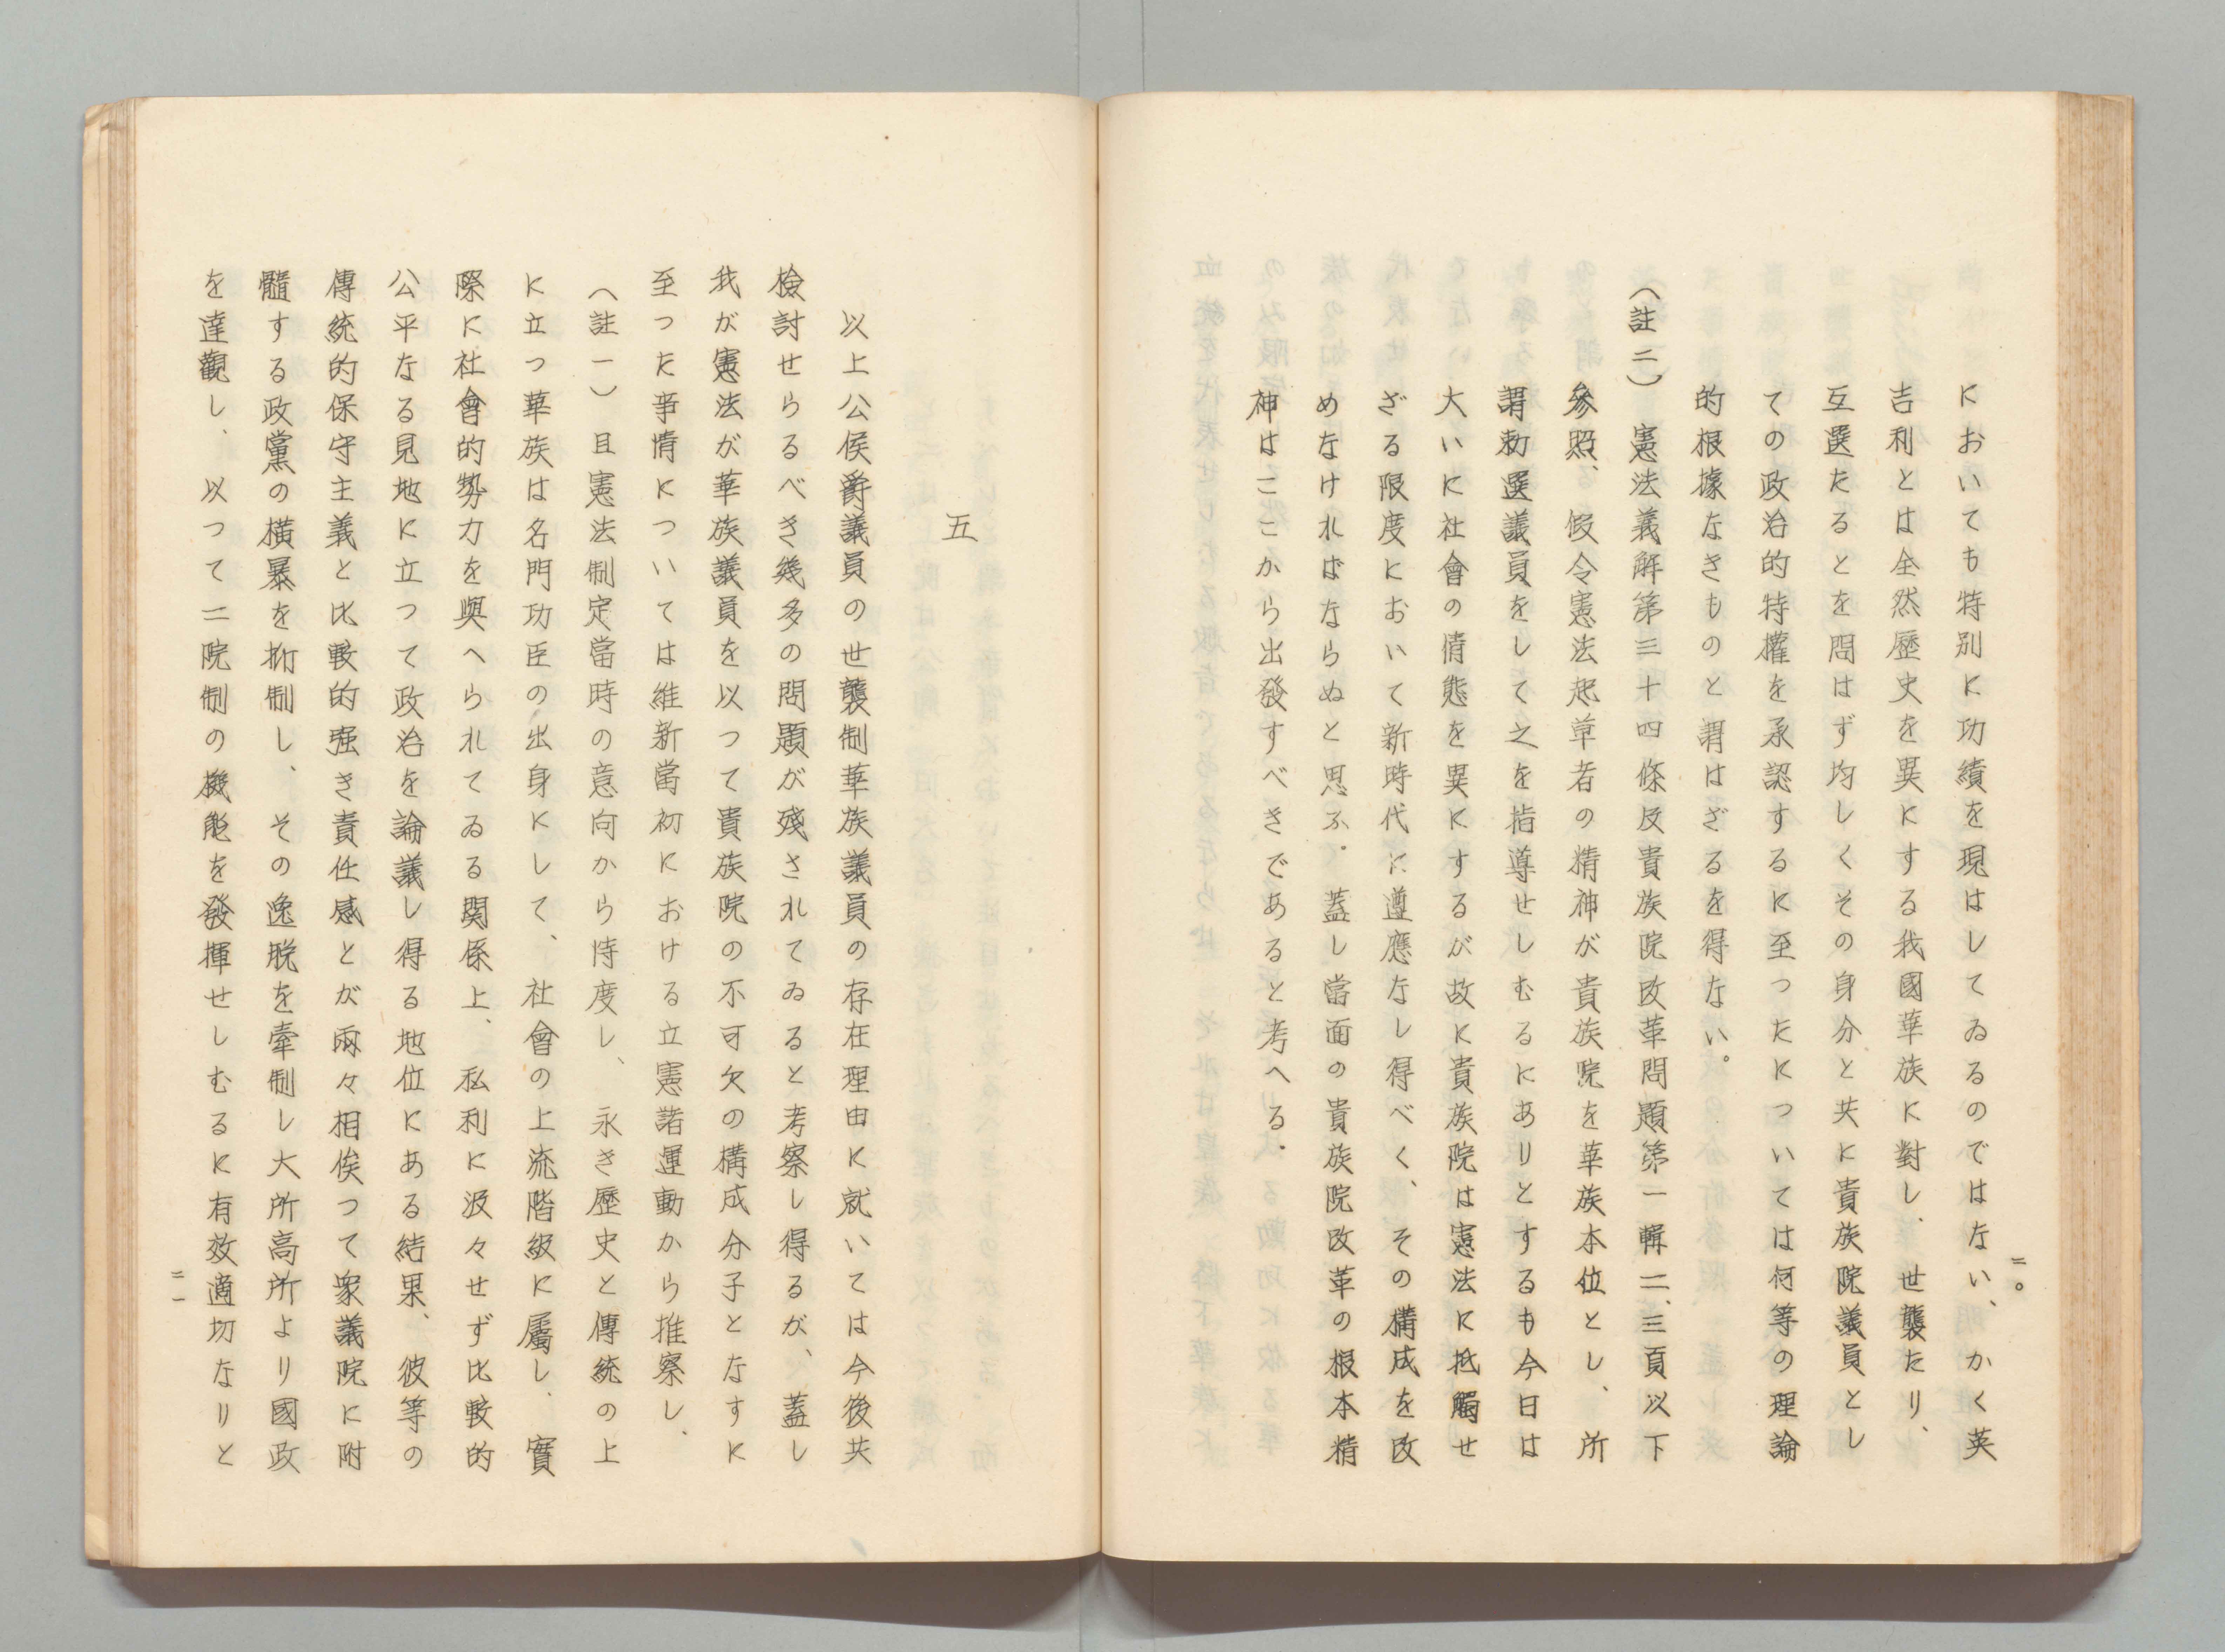 二〇
においても特別に功績を現はしてゐるのではない、かく英
吉利とは全然歷史を異にする我國華族に對し、世襲たり、
互選たるとを問はず均しくその身分と共に貴族院議員とし
ての政治的特權を承認するに至つたについては何等の理論
的根據なきものと謂はざるを得ない。
(註二) 憲法義解第三十四條及貴族院改革問題第一輯二、三頁以下
參照、假令憲法起草者の精神が貴族院を華族本位とし、所
謂勅選議員をして之を指導せしむるにありとするも今日は
大いに社會の情態を異にするが故に貴族院は憲法に抵觸せ
ざる限度において新時代に遵應なし得べく、その構成を改
めなければならぬと思ふ。蓋し當面の貴族院改革の根本精
神はここから出發すべきであると考へる。
五
以上公侯爵議員の世襲制華族議員の存在理由に就いては今後共
檢討せらるべき幾多の問題が殘されてゐると考察し得るが、蓋し
我が憲法が華族議員を以つて貴族院の不可欠の構成分子となすに
至つた事情については維新當初における立憲諸運動から推察し、
(註一)且憲法制定當時の意向から忖度し、永き歷史と傳統の上
に立つ華族は名門功臣の出身にして、社會の上流階級に屬し、實
際に社會的勢力を與へられてゐる関係上、私利に汲々せず比較的
公平なる見地に立つて政治を論議し得る地位にある結果、彼等の
傳統的保守主義と比較的强き責任感とが兩々相俟つて衆議院に附
髓する政黨の橫暴を抑制し、その逸脫を牽制し大所高所より國政
を達觀し、以つて二院制の機能を發揮せしむるに有效適切なりと
二一